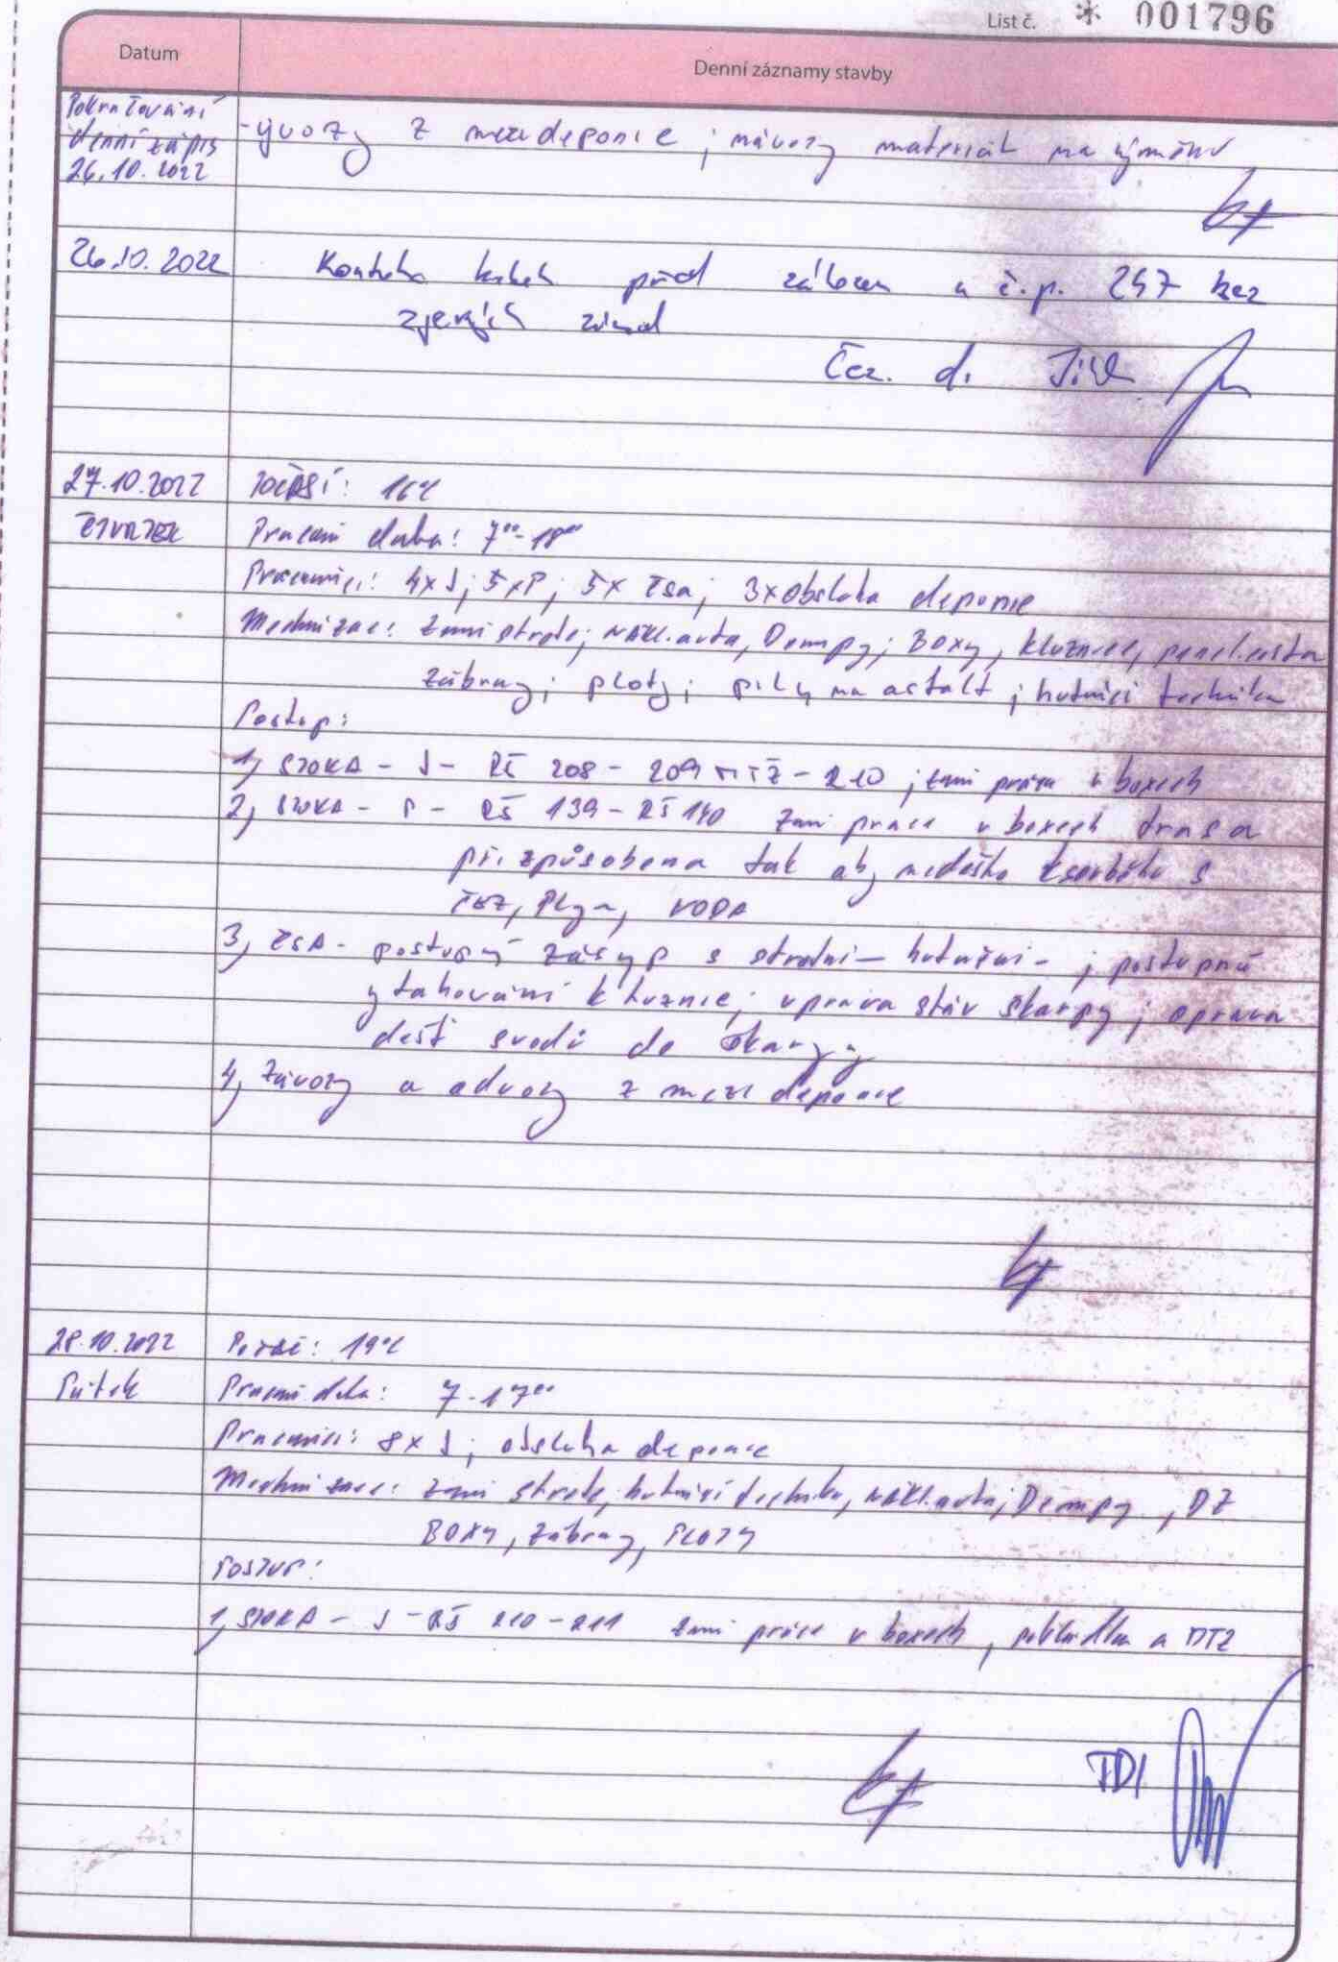 List č. * 001796
Datum
Denní záznamy stavby
Pokračování
denní zápis
26.10.2022
-ývozy z mezideponie ; návozy materiál na výměnu
26.10.2022
Kontrola kabelů před záhozem u č.p. 257 bez
zjevných závad
Čez. d.
27.10.2022
Počasí: 16°C
čtvrtek
Pracovní doba: 7⁰⁰-18⁰⁰
Pracovníci: 4xJ; 5xP; 5x ČSA; 3x obsluha deponie
Mechnizace: Zemní stroje; nákl.auta, Dempy; Boxy, kluznice, panel.cesta
zábrany; ploty; pily na asfalt ; hutnící technika
Postup:
1, STOKA - J - RŠ 208 - 209 MTŽ - 210 ; zemní práce v boxech
2, STOKA - P - RŠ 139 - RŠ 140 zemní práce v boxech trasa
přizpůsobena tak aby nedošlo k souběhu s
ČEZ, Plyn, VODA
3, ČSA - postupný zásyp s strojní- hutnění- ; postupné
ytahování kluznic; uprava stáv škarpy ; oprava
dešť svodů do škarpy
4, Závozy a odvozy z mezi deponie
28.10.2022
Počasí: 19°C
Pátek
Pracovní doba: 7-17⁰⁰
Pracovníci: 8x J; obsluha deponie
Mechnizace: zemní stroje, hutnící technika, nákl.auta, Dempy, DZ
BOXY, zábrany, PLOTY
POSTUP:
1, STOKA - J - RŠ 210-211 zemní práce v boxech, pokládka a MTŽ
TDI